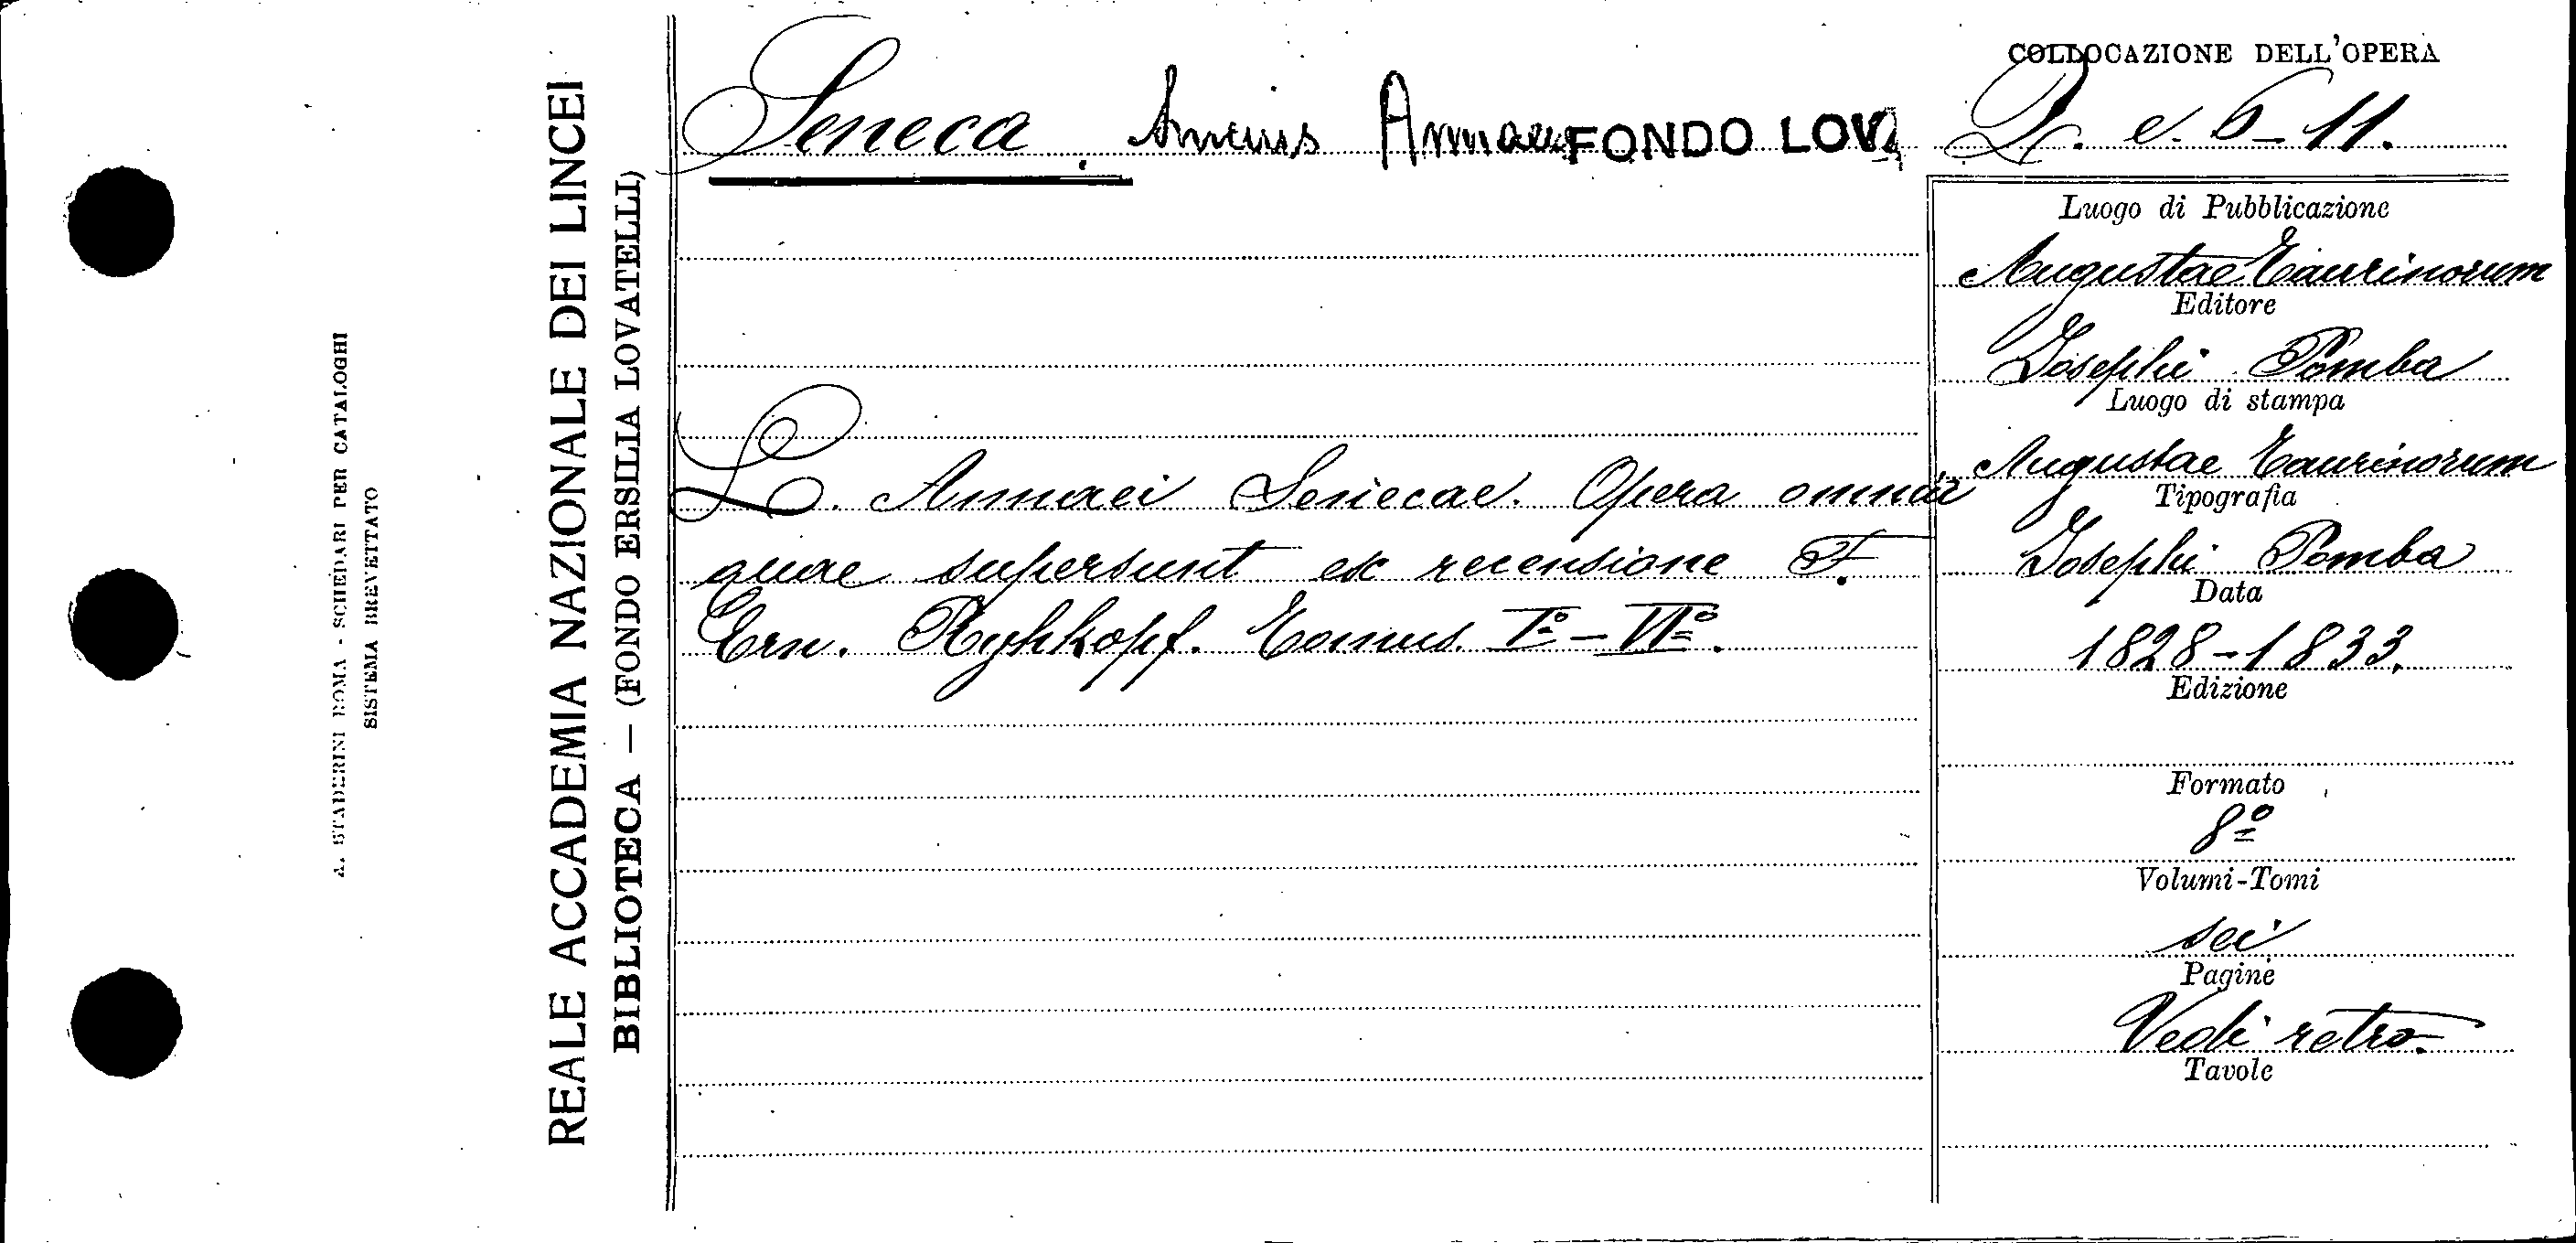 A. STADERINI ROMA - SCHEDARI PER CATALOGHI
SISTEMA BREVETTATO
REALE ACCADEMIA NAZIONALE DEI LINCEI
BIBLIOTECA — (FONDO ERSILIA LOVATELLI)
Seneca. FONDO LOV
L. Annaei Senecae. Opera omnia
quae supersunt ex recensione F.
Ern. Ruhkopf. Tomus. I.º - VI.º.
COLLOCAZIONE DELL'OPERA
e. 6-11.
Luogo di Pubblicazione
Augustae Taurinorum
Editore
Josephi Pomba
Luogo di stampa
Augustae Taurinorum
Tipografia
Josephi Pomba
Data
1828-1833.
Edizione
Formato
8º
Volumi-Tomi
sei
Pagine
Vedi retro.
Tavole